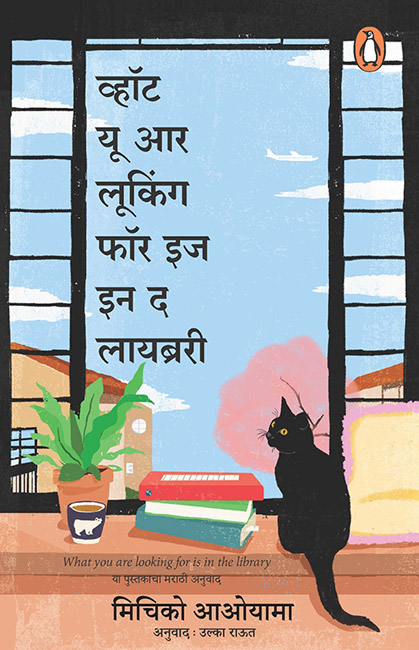 व्हॉट
यू आर
लूकिंग
फॉर इज
इन द
लायब्ररी
What you are looking for is in the library
या पुस्तकाचा मराठी अनुवाद
मिचिको आओयामा
अनुवाद : उल्का राऊत